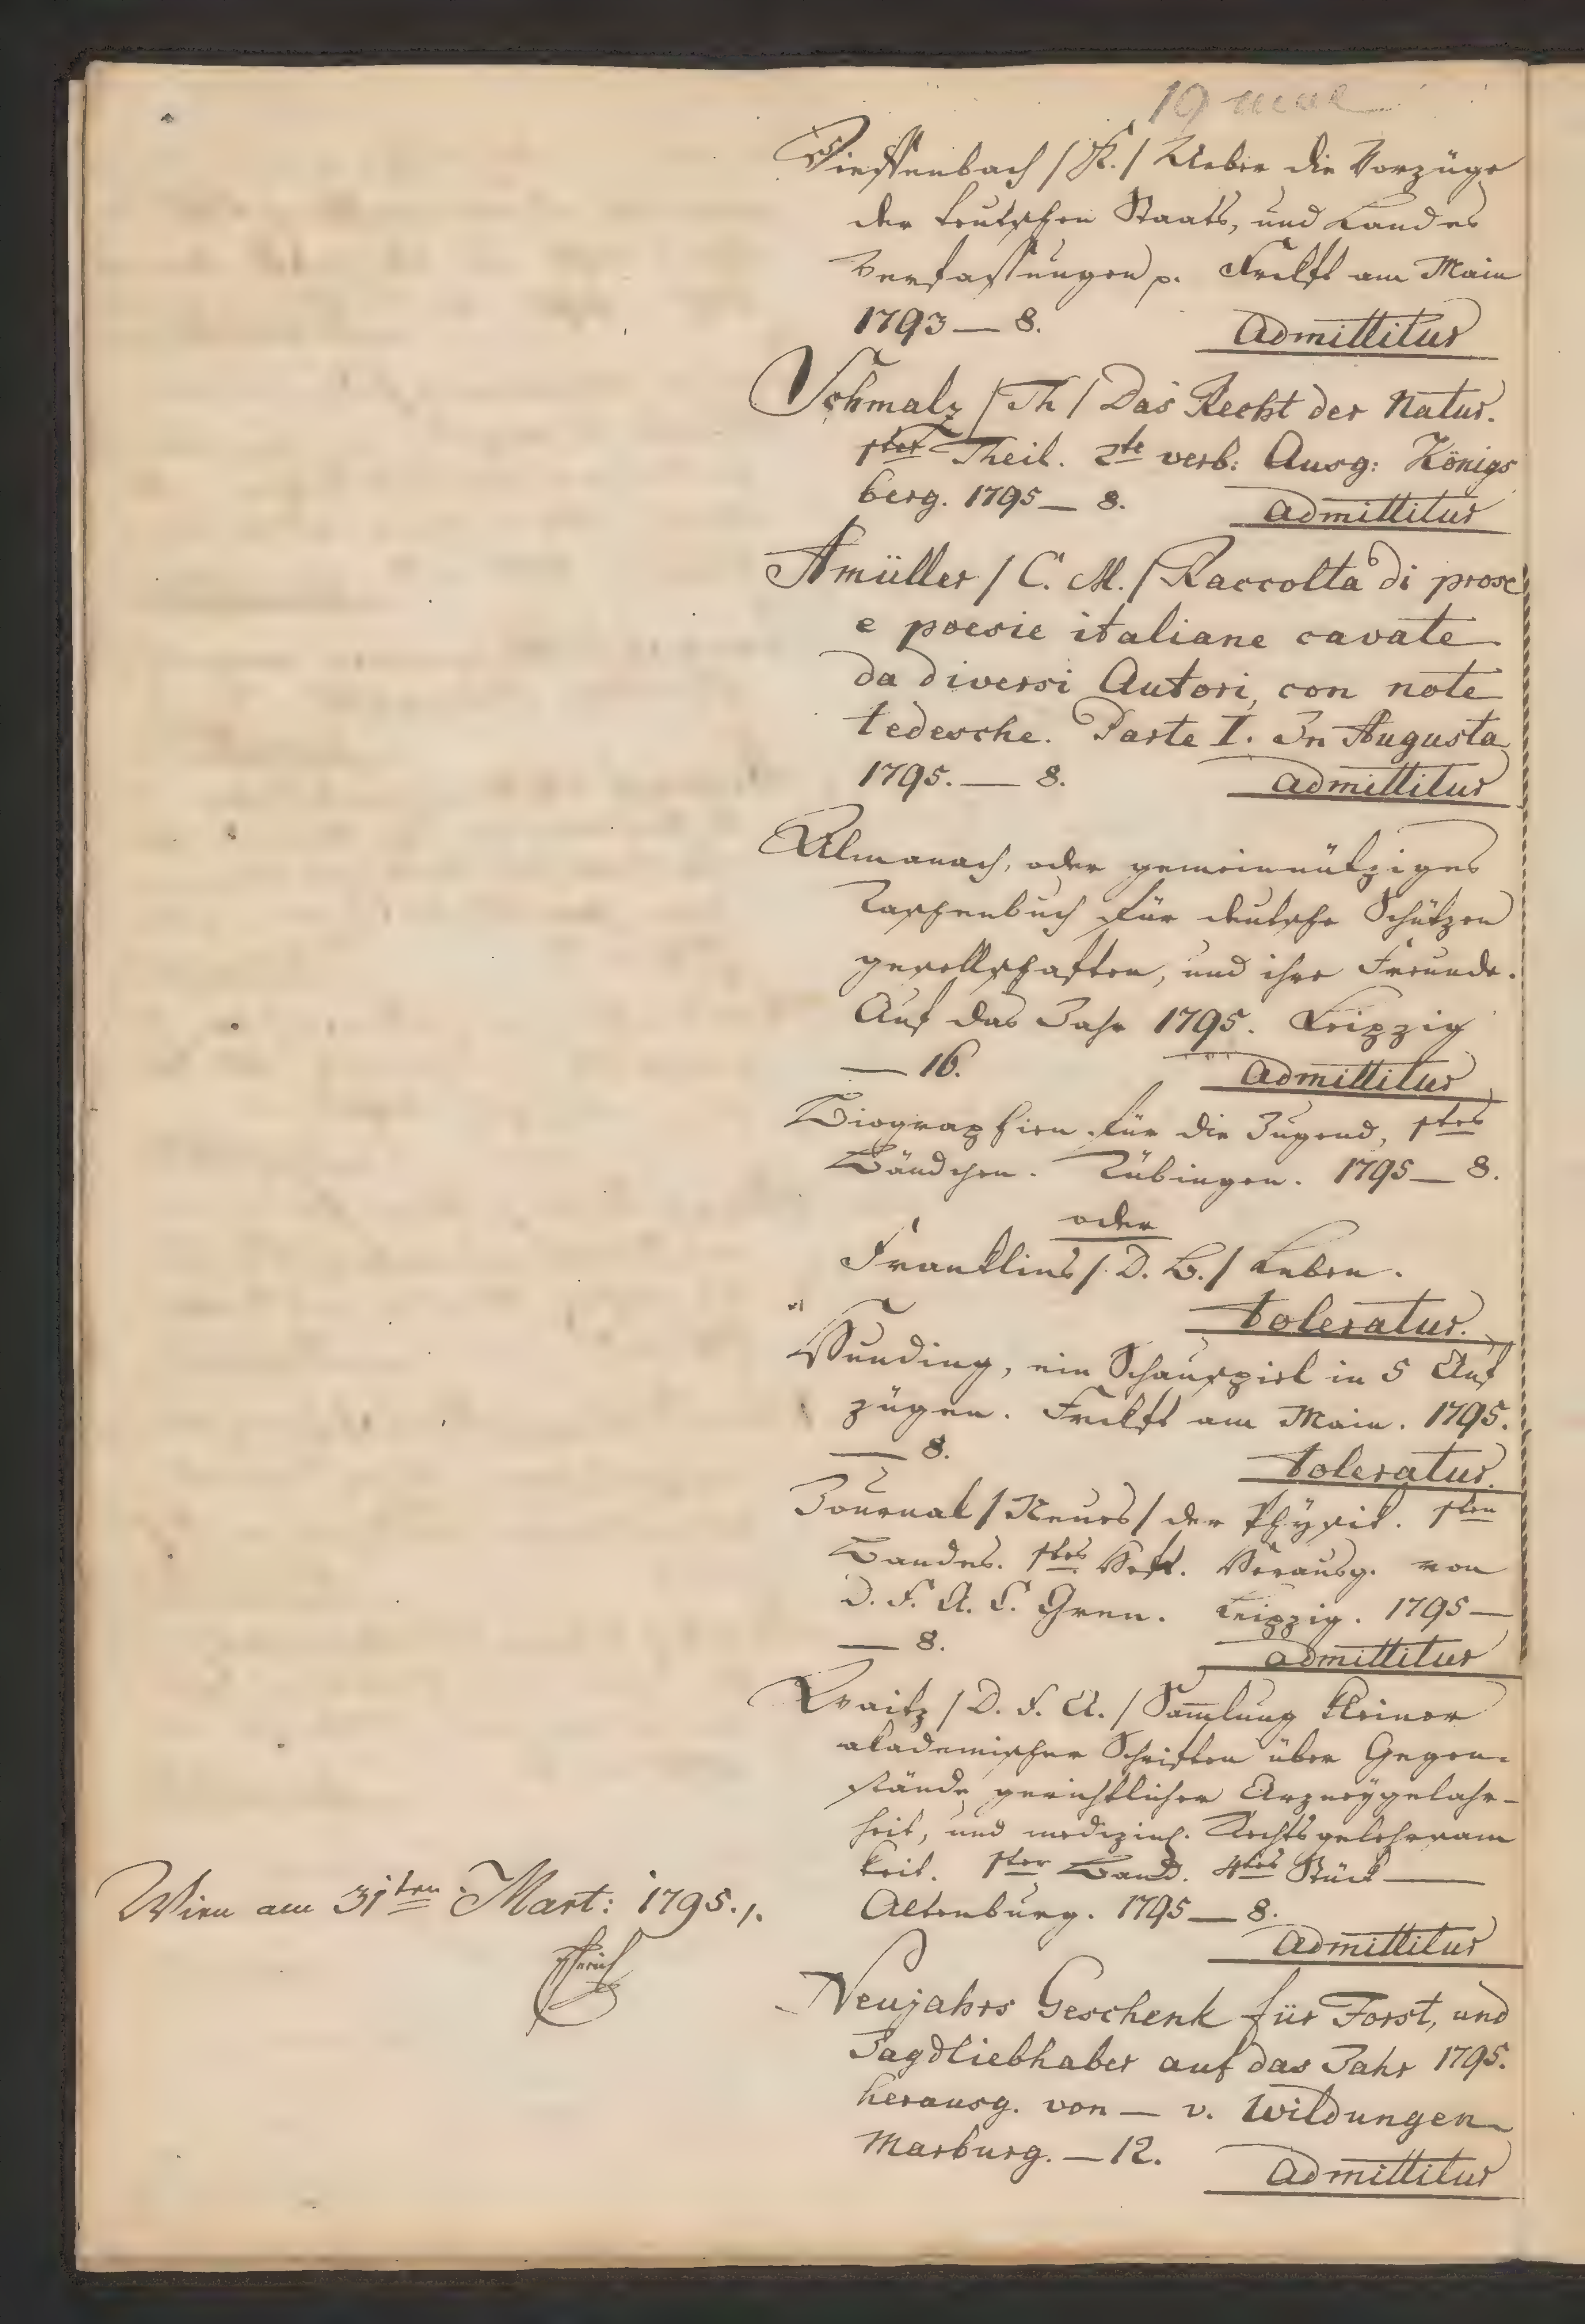 Wieffenbach / K. / Ueber die Vorzüge
der teutschen Staats, und Landes
Verfassungen p. Frckft am Main
1793 — 8. Admittitur
Schmalz / Th / Das Recht der Natur.
1ster Theil. 2te verb: Ausg: Königs
berg. 1795 — 8. Admittitur
Amüller / C. M. / Raccolta di prose
e poesie italiane cavate
da diversi Autori, con note
tedesche. Parte I. In Augusta
1795. — 8. Admittitur
Allmanach, oder gemeinnütziges
Taschenbuch für deutsche Schützen
gesellschaften, und ihre Freunde.
Auf das Jahr 1795. Leipzig
— 16. Admittitur
Biographien für die Jugend, 1stes
Bändchen. Tübingen. 1795 — 8.
oder
Franklins / D. B. / Leben.
toleratur.
Hunding, ein Schauspiel in 5 Auf
zügen. Frckft am Main. 1795.
— 8. toleratur.
Journal / Neues / der Physik. 1sten
Bandes. 1stes Heft. Herausg. von
D. F. A. C. Gren. Leipzig. 1795 —
— 8. admittitur
Waitz / D. F. A. / Sammlung kleiner
akademischer Schriften über Gegen-
stände gerichtlicher Arzneygelahr-
heit, und medizinl. Rechtsgelehrsam
keit. 1ster Band. 4tes Stück —
Altenburg. 1795 — 8.
Admittitur
Neujahrs Geschenk für Forst, und
Jagdliebhaber auf das Jahr 1795.
herausg. von — v. Wildungen
Marburg. — 12. Admittitur
Wien am 31ten Mart: 1795.